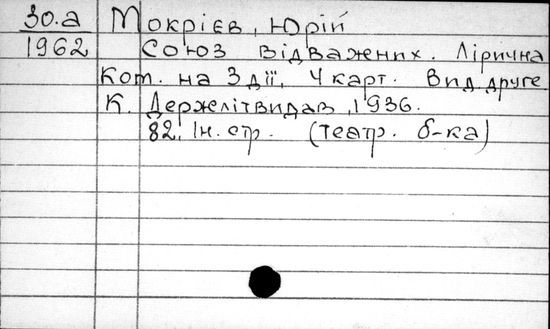 30.а Мокрієв, Юрій
1962 Союз відважних. Лірична
Ком. на 3 дії, 4 карт. Вид. друге
К. Держлітвидав, 1936.
82, ін. стр. (театр. б-ка)